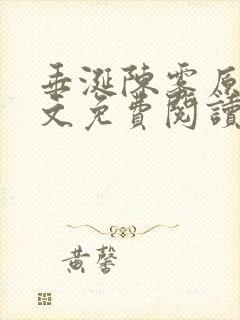 垂涎陳霎原
文免費閱讀
黃馨